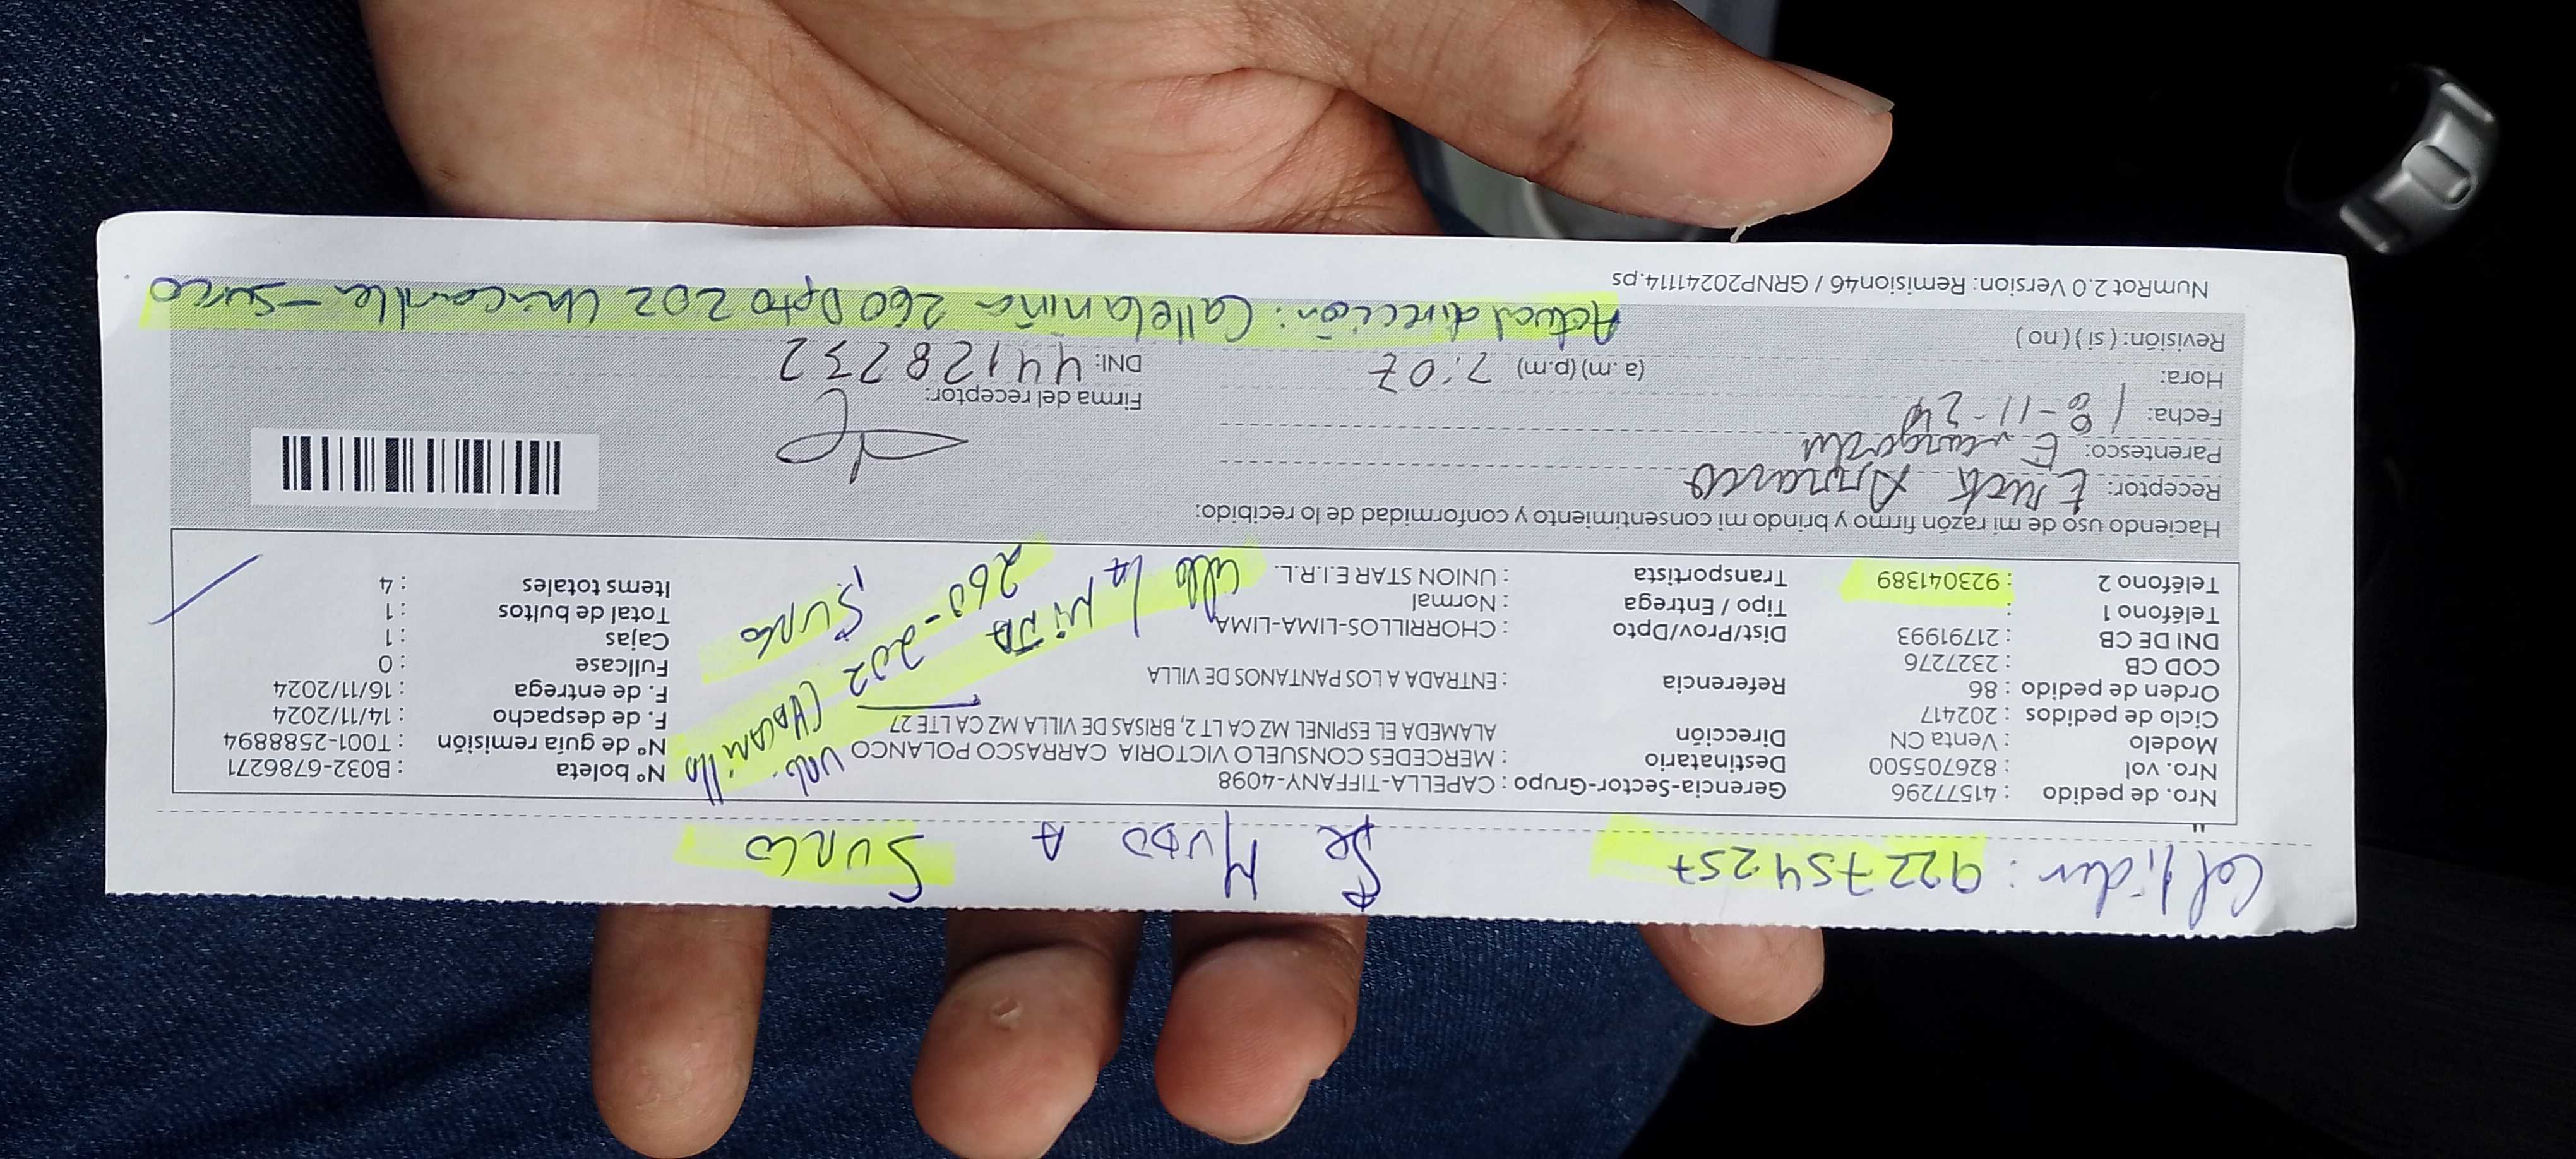 Cel líder: 922754257 Se MUDO A SURCO
Nro. de pedido : 41577296
Nro. vol : 826705500
Modelo : Venta CN
Ciclo de pedidos : 202417
Orden de pedido : 86
COD CB : 2327276
DNI DE CB : 21791993
Teléfono 1 :
Teléfono 2 : 923041389
Gerencia-Sector-Grupo : CAPELLA-TIFFANY-4098
Destinatario : MERCEDES CONSUELO VICTORIA CARRASCO POLANCO
Dirección ALAMEDA EL ESPINEL MZ CA LT 2, BRISAS DE VILLA MZ CA LTE 27
Referencia : ENTRADA A LOS PANTANOS DE VILLA
Dist/Prov/Dpto : CHORRILLOS-LIMA-LIMA
Tipo / Entrega : Normal
Transportista : UNION STAR E.I.R.L.
Nº boleta : B032-6786271
Nº de guía remisión : T001-2588894
F. de despacho : 14/11/2024
F. de entrega : 16/11/2024
Fullcase : 0
Cajas : 1
Total de bultos : 1
Items totales : 4
LA NIÑA
260-202
SURCO
Haciendo uso de mi razón firmo y brindo mi consentimiento y conformidad de lo recibido:
Receptor: Erick
Parentesco:
Fecha: 18-11-24
Hora: (a.m) (p.m) 7:07
Revisión: ( si ) ( no )
Firma del receptor:
DNI: 44128232
Actual dirección: Calle la niña 260 Dpto 202 Chacarilla - Surco
NumRot 2.0 Version: Remision46 / GRNP20241114.ps